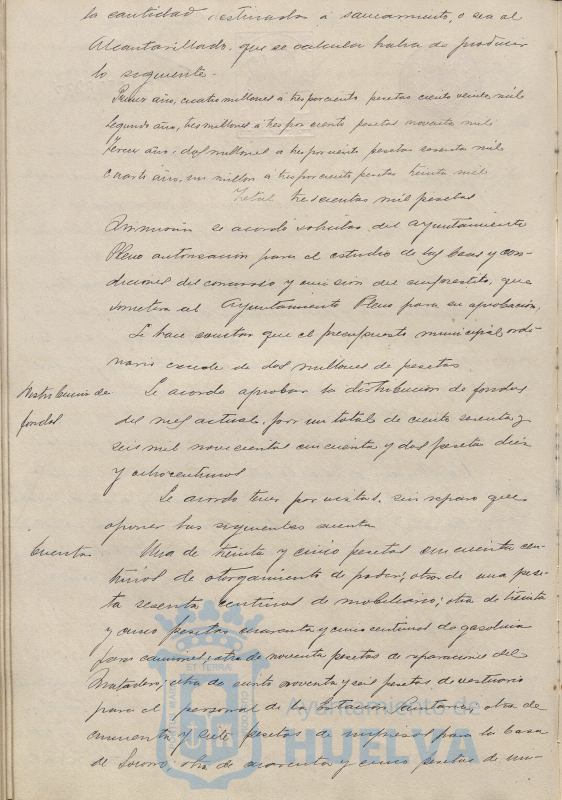 la cantidad destinada á saneamiento, o sea al
Alcantarillado, que se calcula habrá de producir
lo siguiente.
Primer año, cuatro millones á tres por ciento pesetas ciento veinte mil
Segundo año, tres millones á tres por ciento pesetas noventa mil
Tercer año, dos millones a tres por ciento pesetas sesenta mil
Cuarto año, un millon a tres por ciento pesetas treinta mil
Total trescientas mil pesetas
se acordó solicitar del Ayuntamiento
Pleno autorización para el estudio de las bases y con-
diciones del concurso y emisión del empréstito, que
someterá al Ayuntamiento Pleno para su aprobación.
Se hace constar que el presupuesto municipal ordi-
nario excede de dos millones de pesetas
Distribución de
fondos
Se acordó aprobar la distribución de fondos
del mes actual, por un total de ciento sesenta y
seis mil novecientas cincuenta y dos pesetas diez
y ocho centimos
Se acordó tener por vistas, sin reparo que
oponer las siguientes cuentas
Cuentas
Una de treinta y cinco pesetas cincuenta cen-
timos de otorgamiento de poder; otra de una pese-
ta sesenta centimos de mobiliario; otra de treinta
y cinco pesetas cuarenta y cinco centimos de gasolina
para camiones; otra de noventa pesetas de reparaciones del
Matadero; otra de ciento noventa y seis pesetas de vestuario
para el personal de la Estación Sanitaria; otra de
cincuenta y siete pesetas de impresos para la Casa
de Socorro; otra de cuarenta y cinco pesetas de im-
Ayuntamiento de
HUELVA